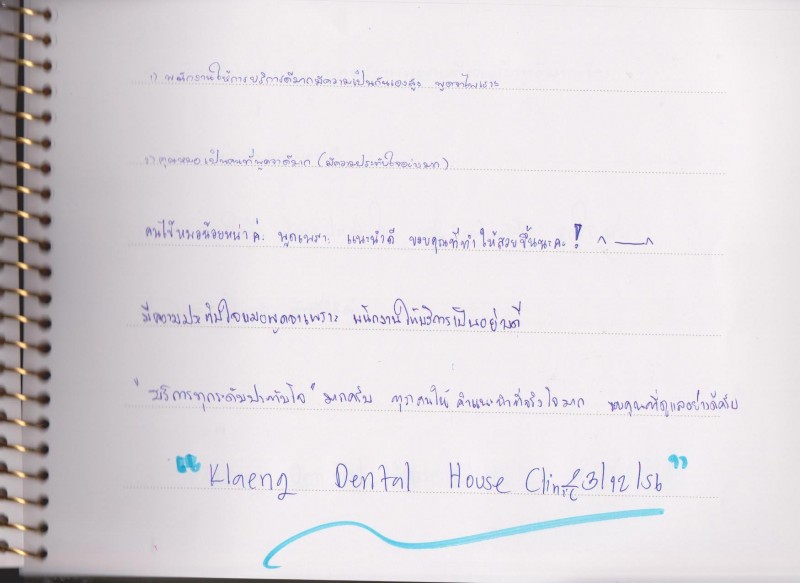 1) พนักงานให้การบริการดีมากมีความเป็นกันเองสูง พูดจาไพเราะ
2) คุณหมอเป็นคนที่พูดจาดีมาก (มีความประทับใจอย่างมาก)
คนไข้หมอน้อยหน่าค่ะ พูดเพราะ แนะนำดี ขอบคุณที่ทำให้สวยขึ้นนะคะ! ^__^
มีความประทับใจหมอพูดจาเพราะ พนักงานให้บริการเป็นอย่างดี
"บริการทุกระดับประทับใจ" มากครับ ทุกคนให้คำแนะนำที่จริงใจมาก ขอบคุณที่ดูแลอย่างดีครับ
"Klaeng Dental House Clinic 23/12/56"